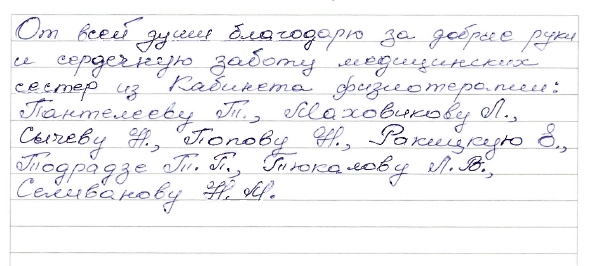 От всей души благодарю за добрые руки
и сердечную заботу медицинских
сестер из Кабинета физиотерапии:
Пантелееву Т., Маховикову Л.,
Сычеву Н., Попову Н., Ракицкую Е.,
Тодрадзе Т. П., Тюкалову Л. В.,
Селиванову Н. М.